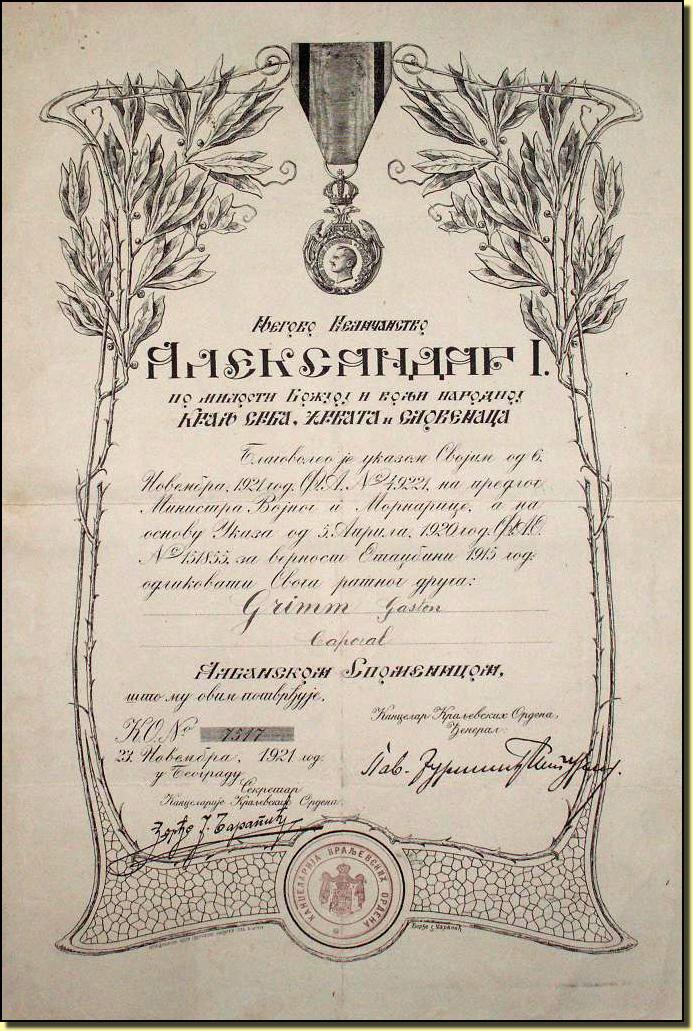 Његово Величанство
АЛЕКСАНДАР I.
по милости Божјој и вољи народној
КРАЉ СРБА, ХРВАТА и СЛОВЕНАЦА
Благоволео је указом Својим од 6.
Новембра, 1921 год. Ф.А. № 4922, на предлог
Министра Војног и Морнарице, а на
основу Указа од 5. Априла, 1920 год.
№ 151855, за верност Отаџбини 1915 год.
одликовати Свога ратног друга:
Grimm Gaston
Caporal
Албанском Споменицом,
што му овим потврђује.
К.О. № 7517
23. Новембра, 1921 год.
у Београду
Секретар
Канцеларије Краљевских Ордена
Канцелар Краљевских Ордена,
Ђенерал
КАНЦЕЛАРИЈА КРАЉЕВСКИХ ОРДЕНА